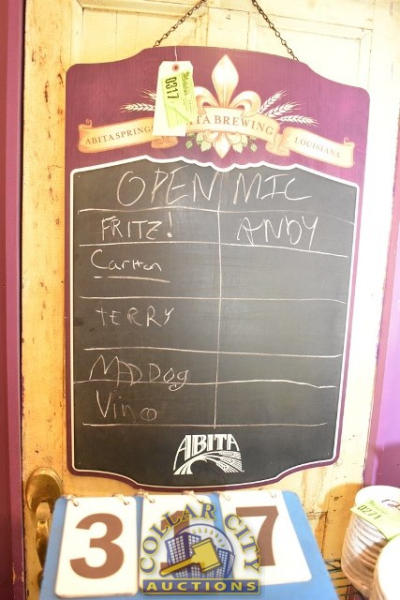 0317
ABITA SPRINGS
ABITA BREWING
LOUISIANA
OPEN MIC
FRITZ! ANDY
Carlton
TERRY
MADDOG
Vino
ABITA
0271
3 7
COLLAR CITY
AUCTIONS